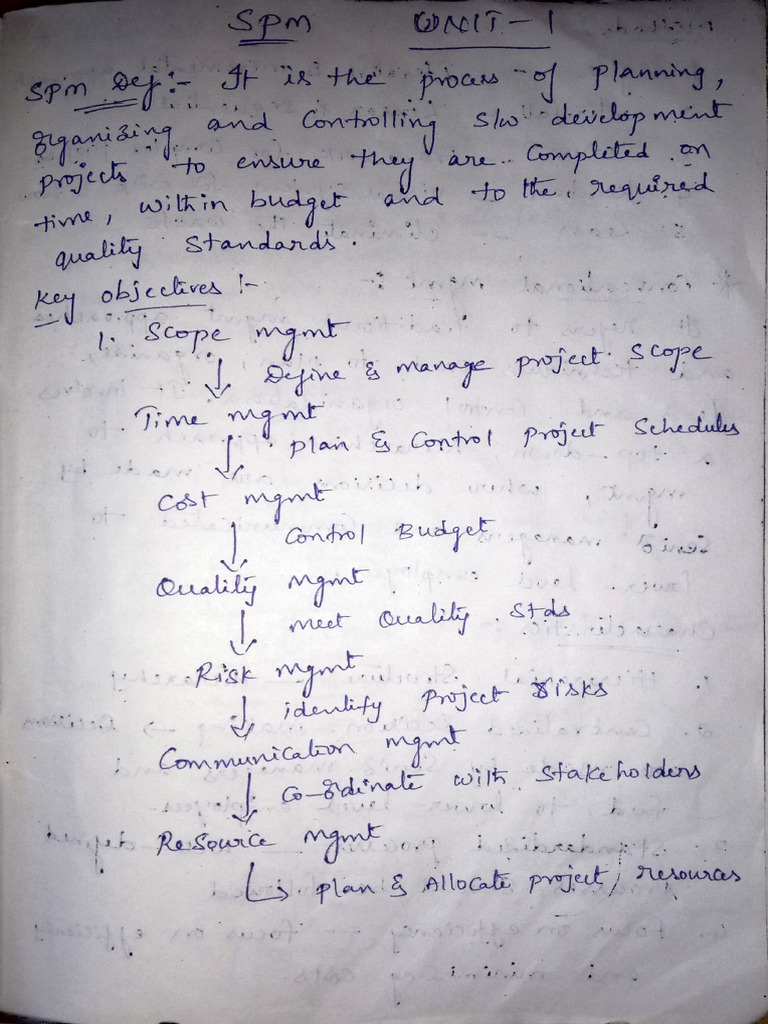 SPM UNIT-1
SPM Def:- It is the process of planning,
organizing and controlling s/w development
projects to ensure they are completed on
time, within budget and to the required
quality standards.
Key objectives :-
1. Scope mgmt
↓ Define & manage project scope
Time mgmt
↓ plan & control project schedules
Cost mgmt
↓ control Budget
Quality mgmt
↓ meet Quality Stds
Risk mgmt
↓ identify project risks
Communication mgmt
↓ co-ordinate with stakeholders
Resource mgmt
↳ plan & Allocate project resources